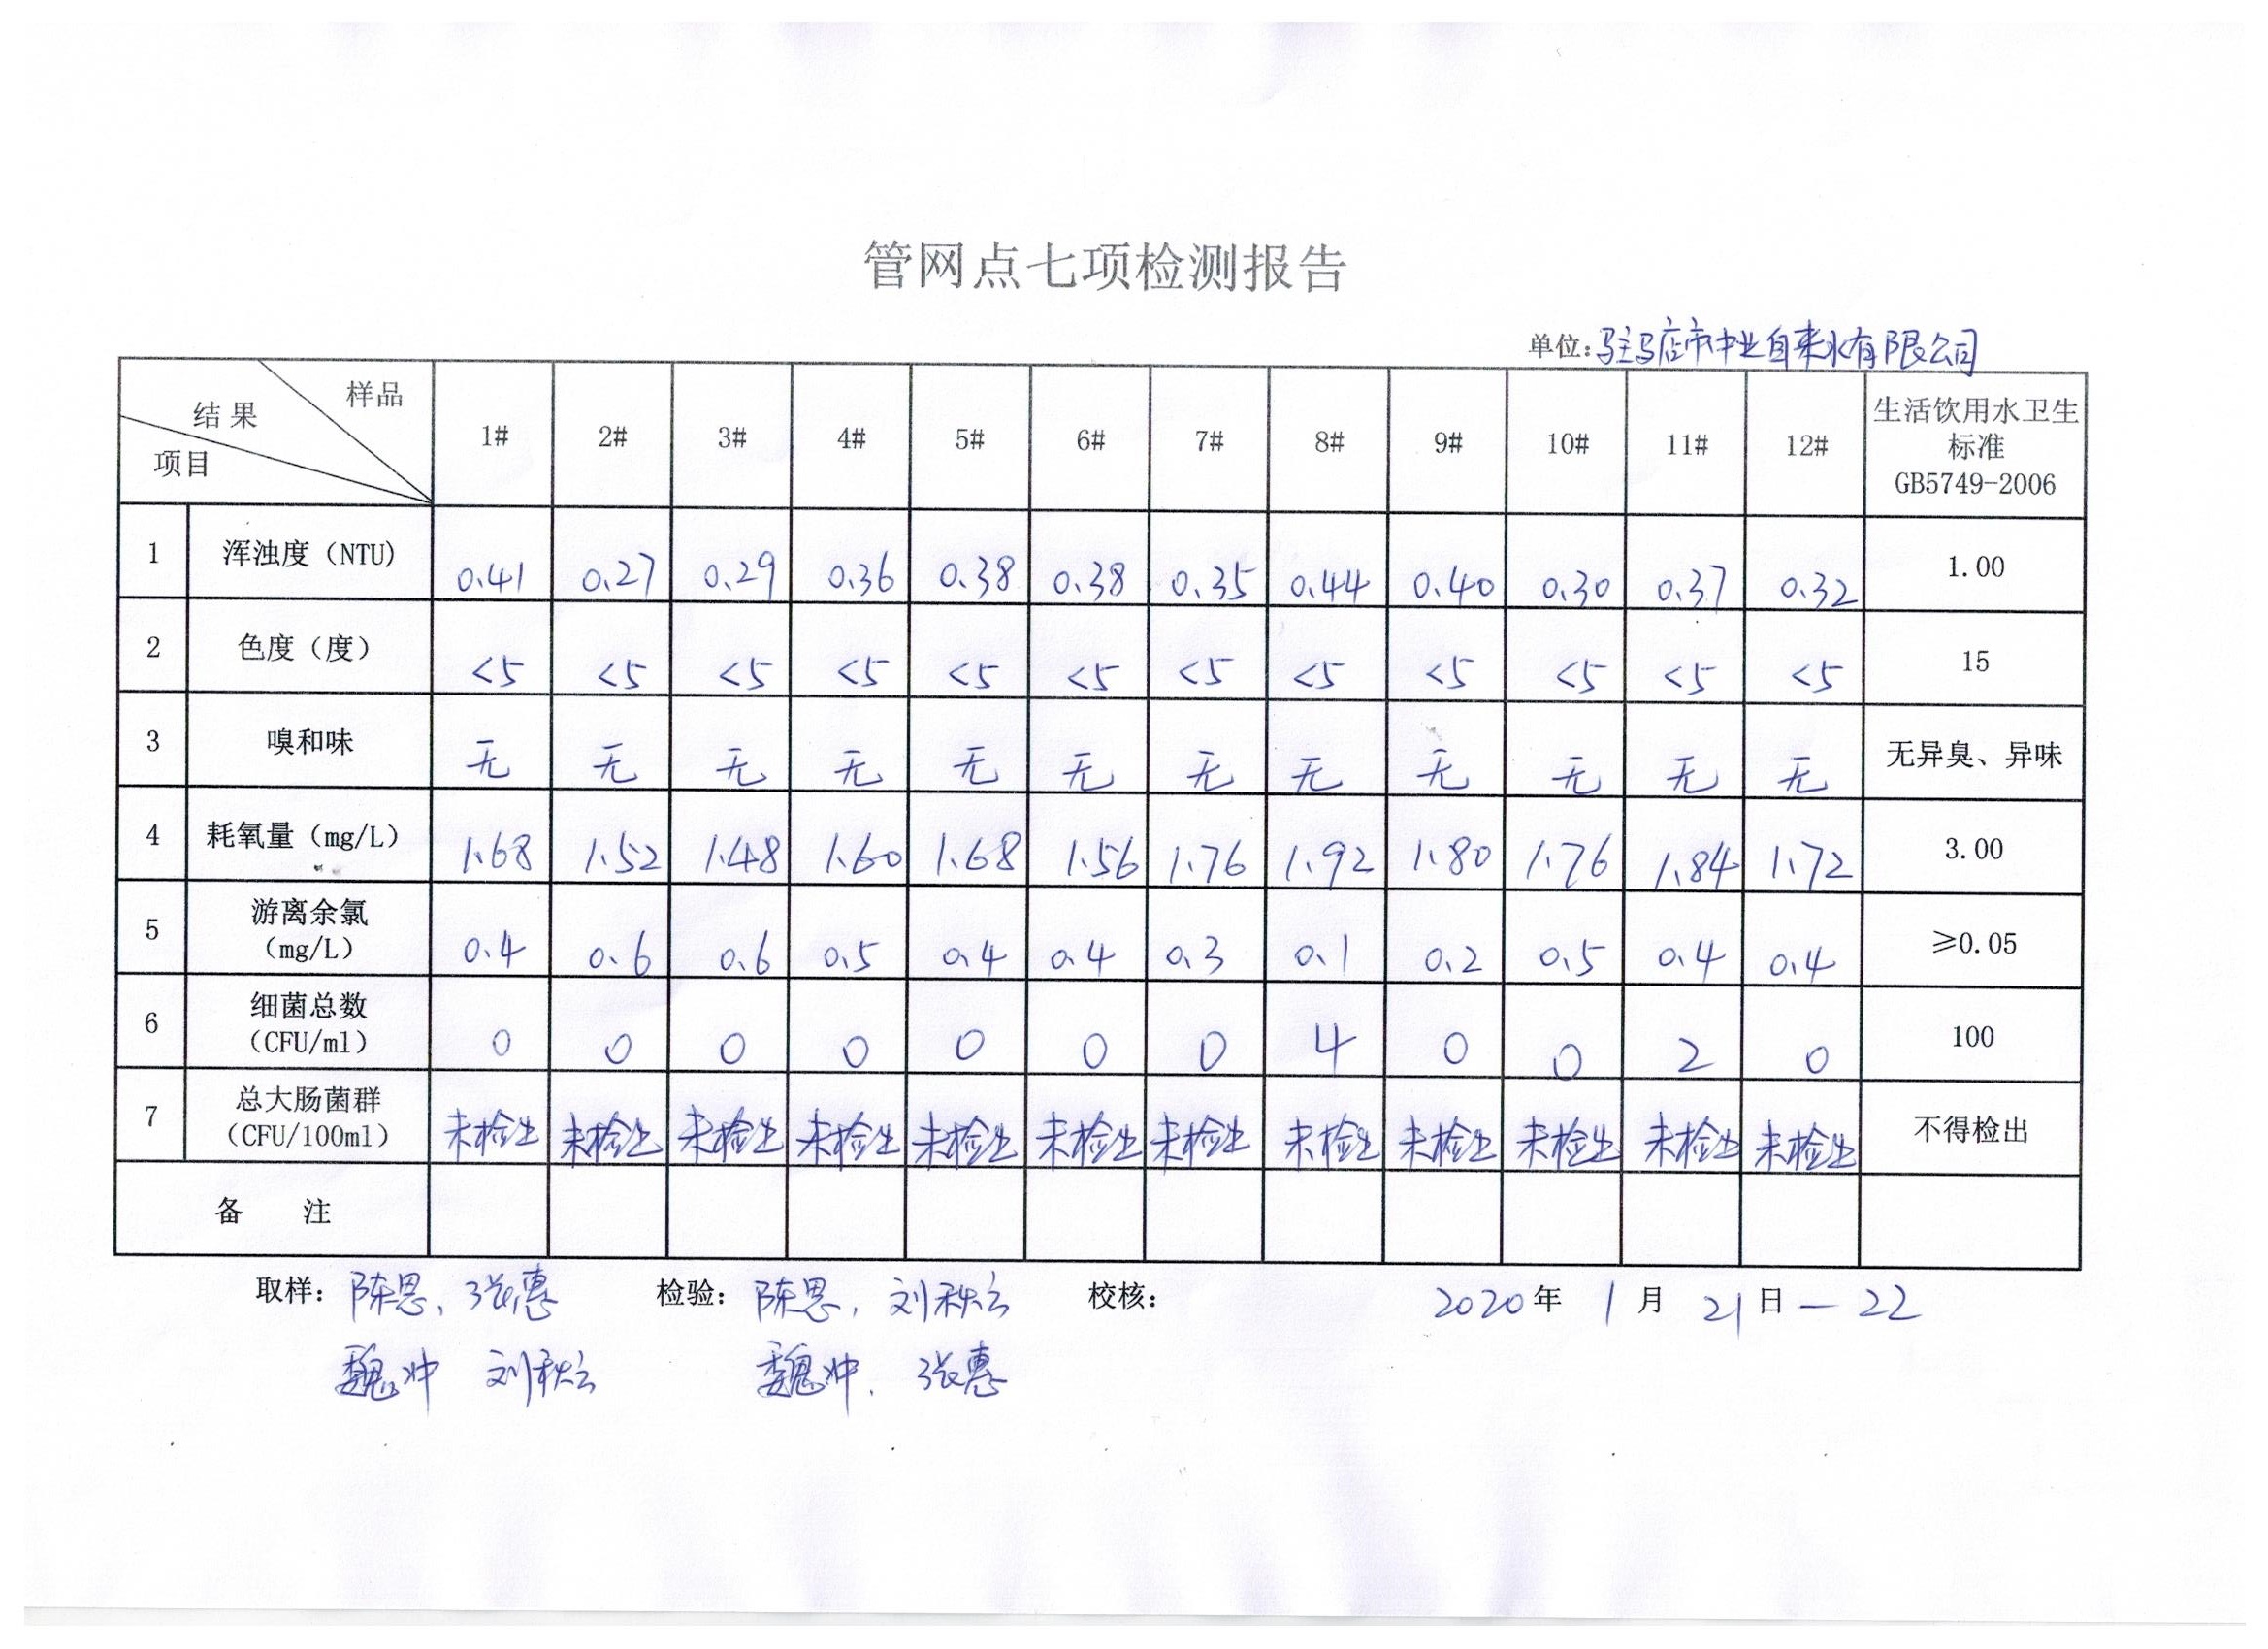 管网点七项检测报告
单位:驻马店市中业自来水有限公司
结果 样品 项目 1# 2# 3# 4# 5# 6# 7# 8# 9# 10# 11# 12# 生活饮用水卫生标准 GB5749-2006
1 浑浊度（NTU) 0.41 0.27 0.29 0.36 0.38 0.38 0.35 0.44 0.40 0.30 0.37 0.32 1.00
2 色度（度） <5 <5 <5 <5 <5 <5 <5 <5 <5 <5 <5 <5 15
3 嗅和味 无 无 无 无 无 无 无 无 无 无 无 无 无异臭、异味
4 耗氧量（mg/L） 1.68 1.52 1.48 1.60 1.68 1.56 1.76 1.92 1.80 1.76 1.84 1.72 3.00
5 游离余氯（mg/L） 0.4 0.6 0.6 0.5 0.4 0.4 0.3 0.1 0.2 0.5 0.4 0.4 ≥0.05
6 细菌总数（CFU/ml） 0 0 0 0 0 0 0 4 0 0 2 0 100
7 总大肠菌群（CFU/100ml） 未检出 未检出 未检出 未检出 未检出 未检出 未检出 未检出 未检出 未检出 未检出 未检出 不得检出
备 注
取样: 陈思、张惠 检验: 陈思, 刘秋云 校核: 2020年 1月 21日—22
魏冲 刘秋云 魏冲. 张惠